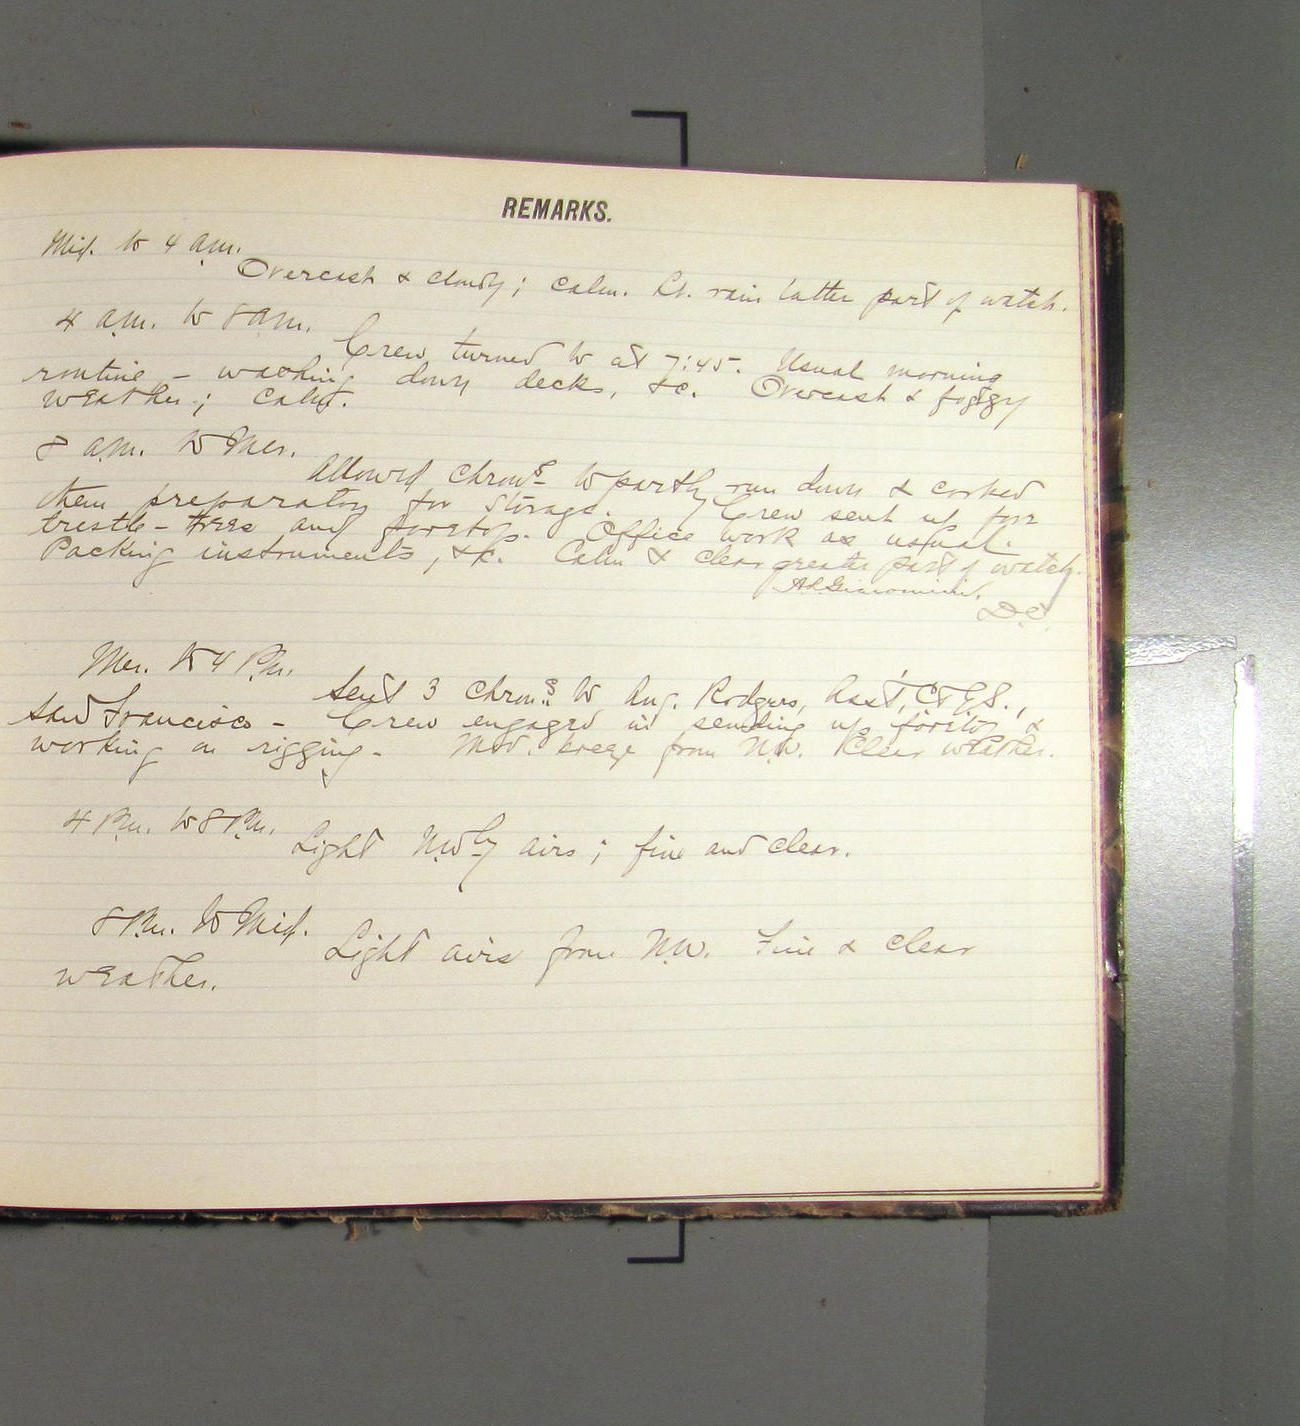 REMARKS.
Mid. to 4 a.m.
Overcast & cloudy; calm. Lt. rain latter part of watch.
4 a.m. to 8 a.m.
Crew turned to at 7:45. Usual morning
routine - washing down decks, &c. Overcast & foggy
weather; calm.
8 a.m. to Mer.
Allowed chrons to partly run down & corked
them preparatory for storage. Crew sent up fore
trestle-trees and foretop. Office work as usual.
Packing instruments, &c. Calm & clear greater part of watch.
D.O.
Mer. to 4 P.m.
Sent 3 chrons to Aug. Rodgers, Asst, C & G.S.,
San Francisco - Crew engaged in sending up foretop &
working on rigging - Mod. breeze from N.W. Clear weather.
4 P.m. to 8 P.m.
Light NWly airs; fine and clear.
8 P.m. to Mid.
Light airs from N.W. Fine & clear
weather.